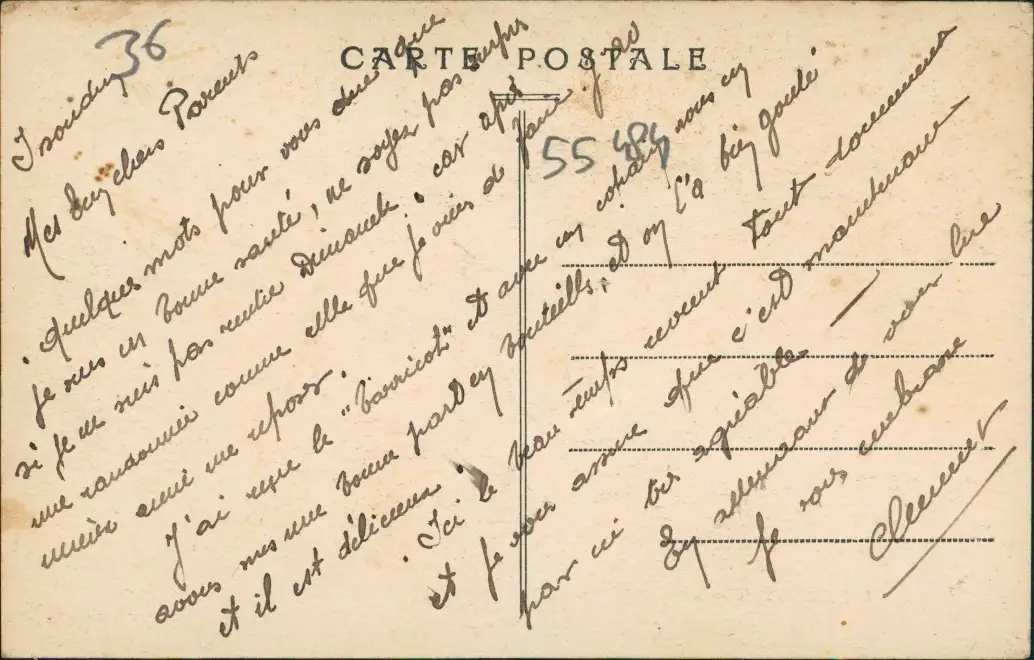 CARTE POSTALE
36
55 484
Issoudun
Mes bien chers Parents
Quelques mots pour vous dire que
je suis en bonne santé, ne soyez pas surpris
si je ne suis pas rentré Dimanche, car après
une randonnée comme celle que je viens de faire j'ai
mieux aimé me reposer.
J'ai reçu le "barricot" et avec un copain nous en
avons mis une bonne part en bouteilles, et on l'a bien goûté
et il est délicieux.
Ici le beau temps revient tout doucement
et je vous assure que c'est maintenant
par ici très agréable.
En attendant de vous lire
je vous embrasse
Clément